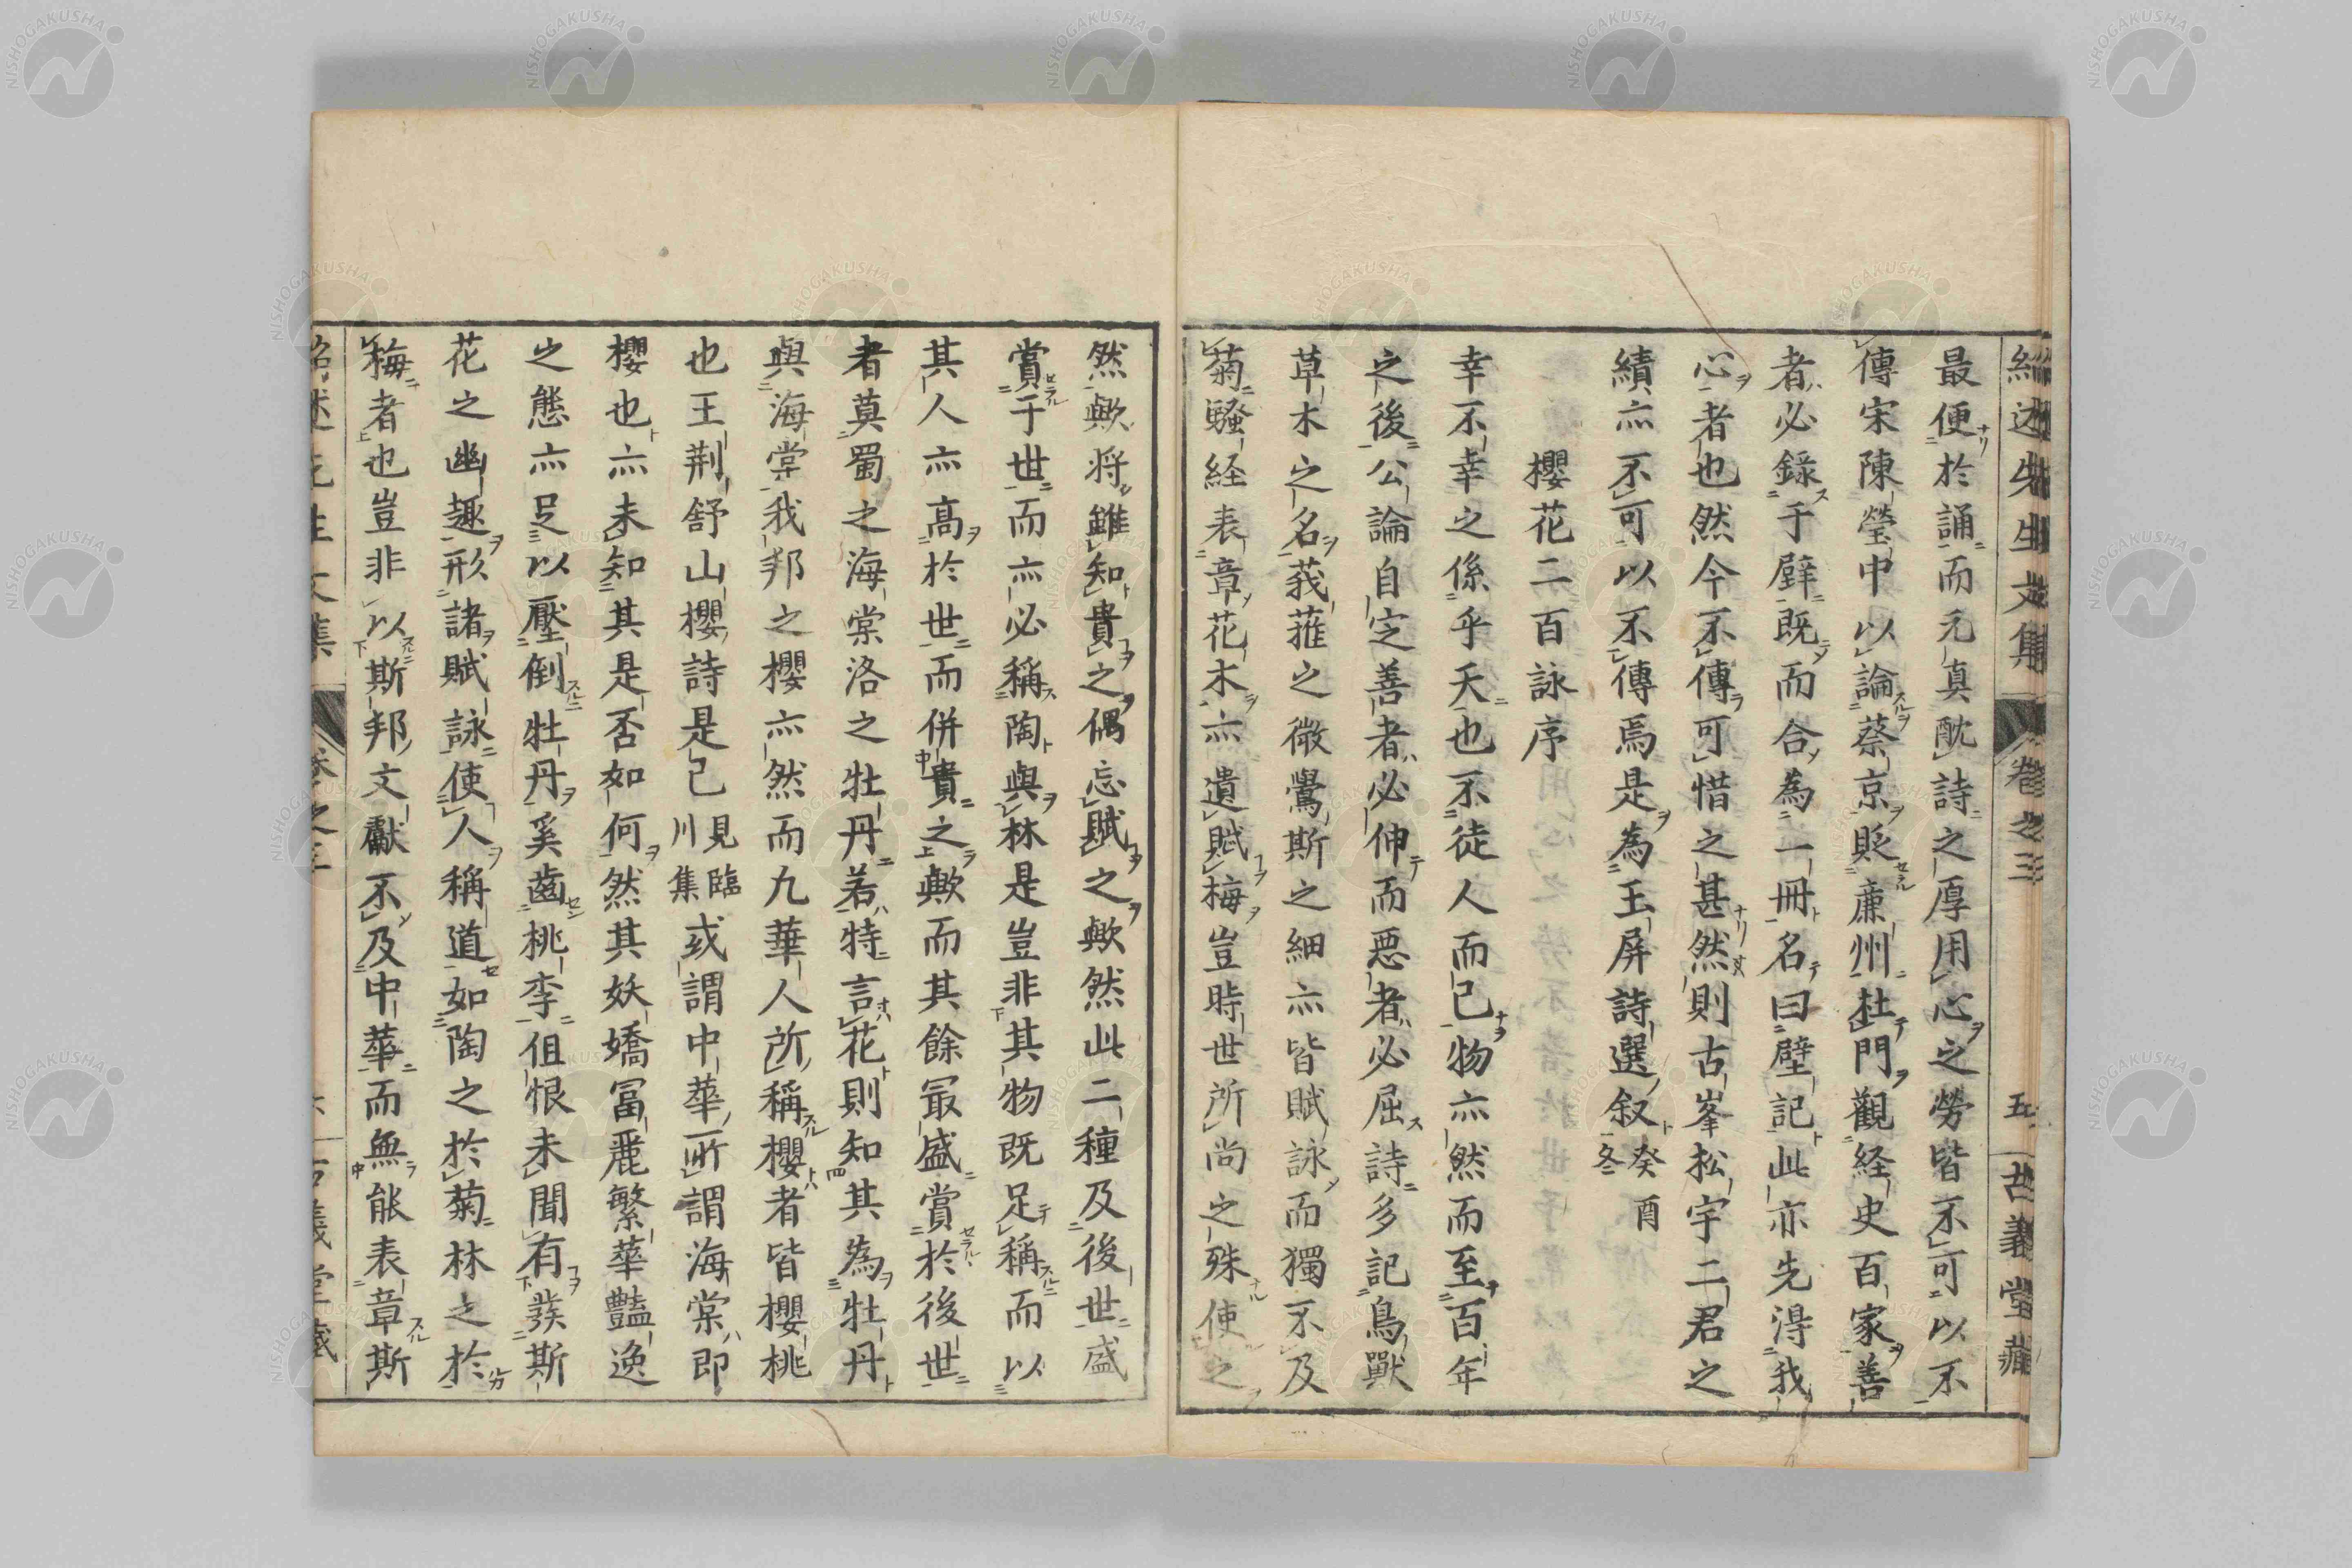 紹述先生文集 卷之三 五 古義堂藏
最便於誦而元真酖詩之厚用心之勞皆不可以不
傳宋陳瑩中以論蔡京貶廉州杜門觀経史百家善
者必錄于壁既而合為一冊名曰壁記此亦先淂我
心者也然今不傳可惜之甚然則古峯松宇二君之
績亦不可以不傳焉是為玉屏詩選叙癸酉冬
櫻花二百詠序
幸不幸之係乎天也不徒人而已物亦然而至百年
之後公論自定善者必伸而惡者必屈詩多記鳥獸
草木之名莪蓷之微鷽斯之細亦皆賦詠而獨不及
菊騷経表章花木亦遺賦梅豈時世所尚之殊使之
然歟将雖知貴之偶忘賦之歟然此二種及後世盛
賞于世而亦必稱陶與林是豈非其物既足稱而以
其人亦高於世而併貴之歟而其餘冣盛賞於後世
者莫蜀之海棠洛之牡丹若特言花則知其為牡丹
與海棠我邦之櫻亦然而九華人所稱櫻者皆櫻桃
也王荆舒山櫻詩是已見臨川集或謂中華所謂海棠即
櫻也亦未知其是否如何然其妖嬌冨麗繁華豔逸
之態亦足以壓倒牡丹奚齒桃李但恨未聞有發斯
花之幽趣形諸賦詠使人稱道如陶之於菊林之於
梅者也豈非以斯邦文獻不及中華而無能表章斯
紹述先生文集 卷之三 古義堂藏
NISHOGAKUSHA